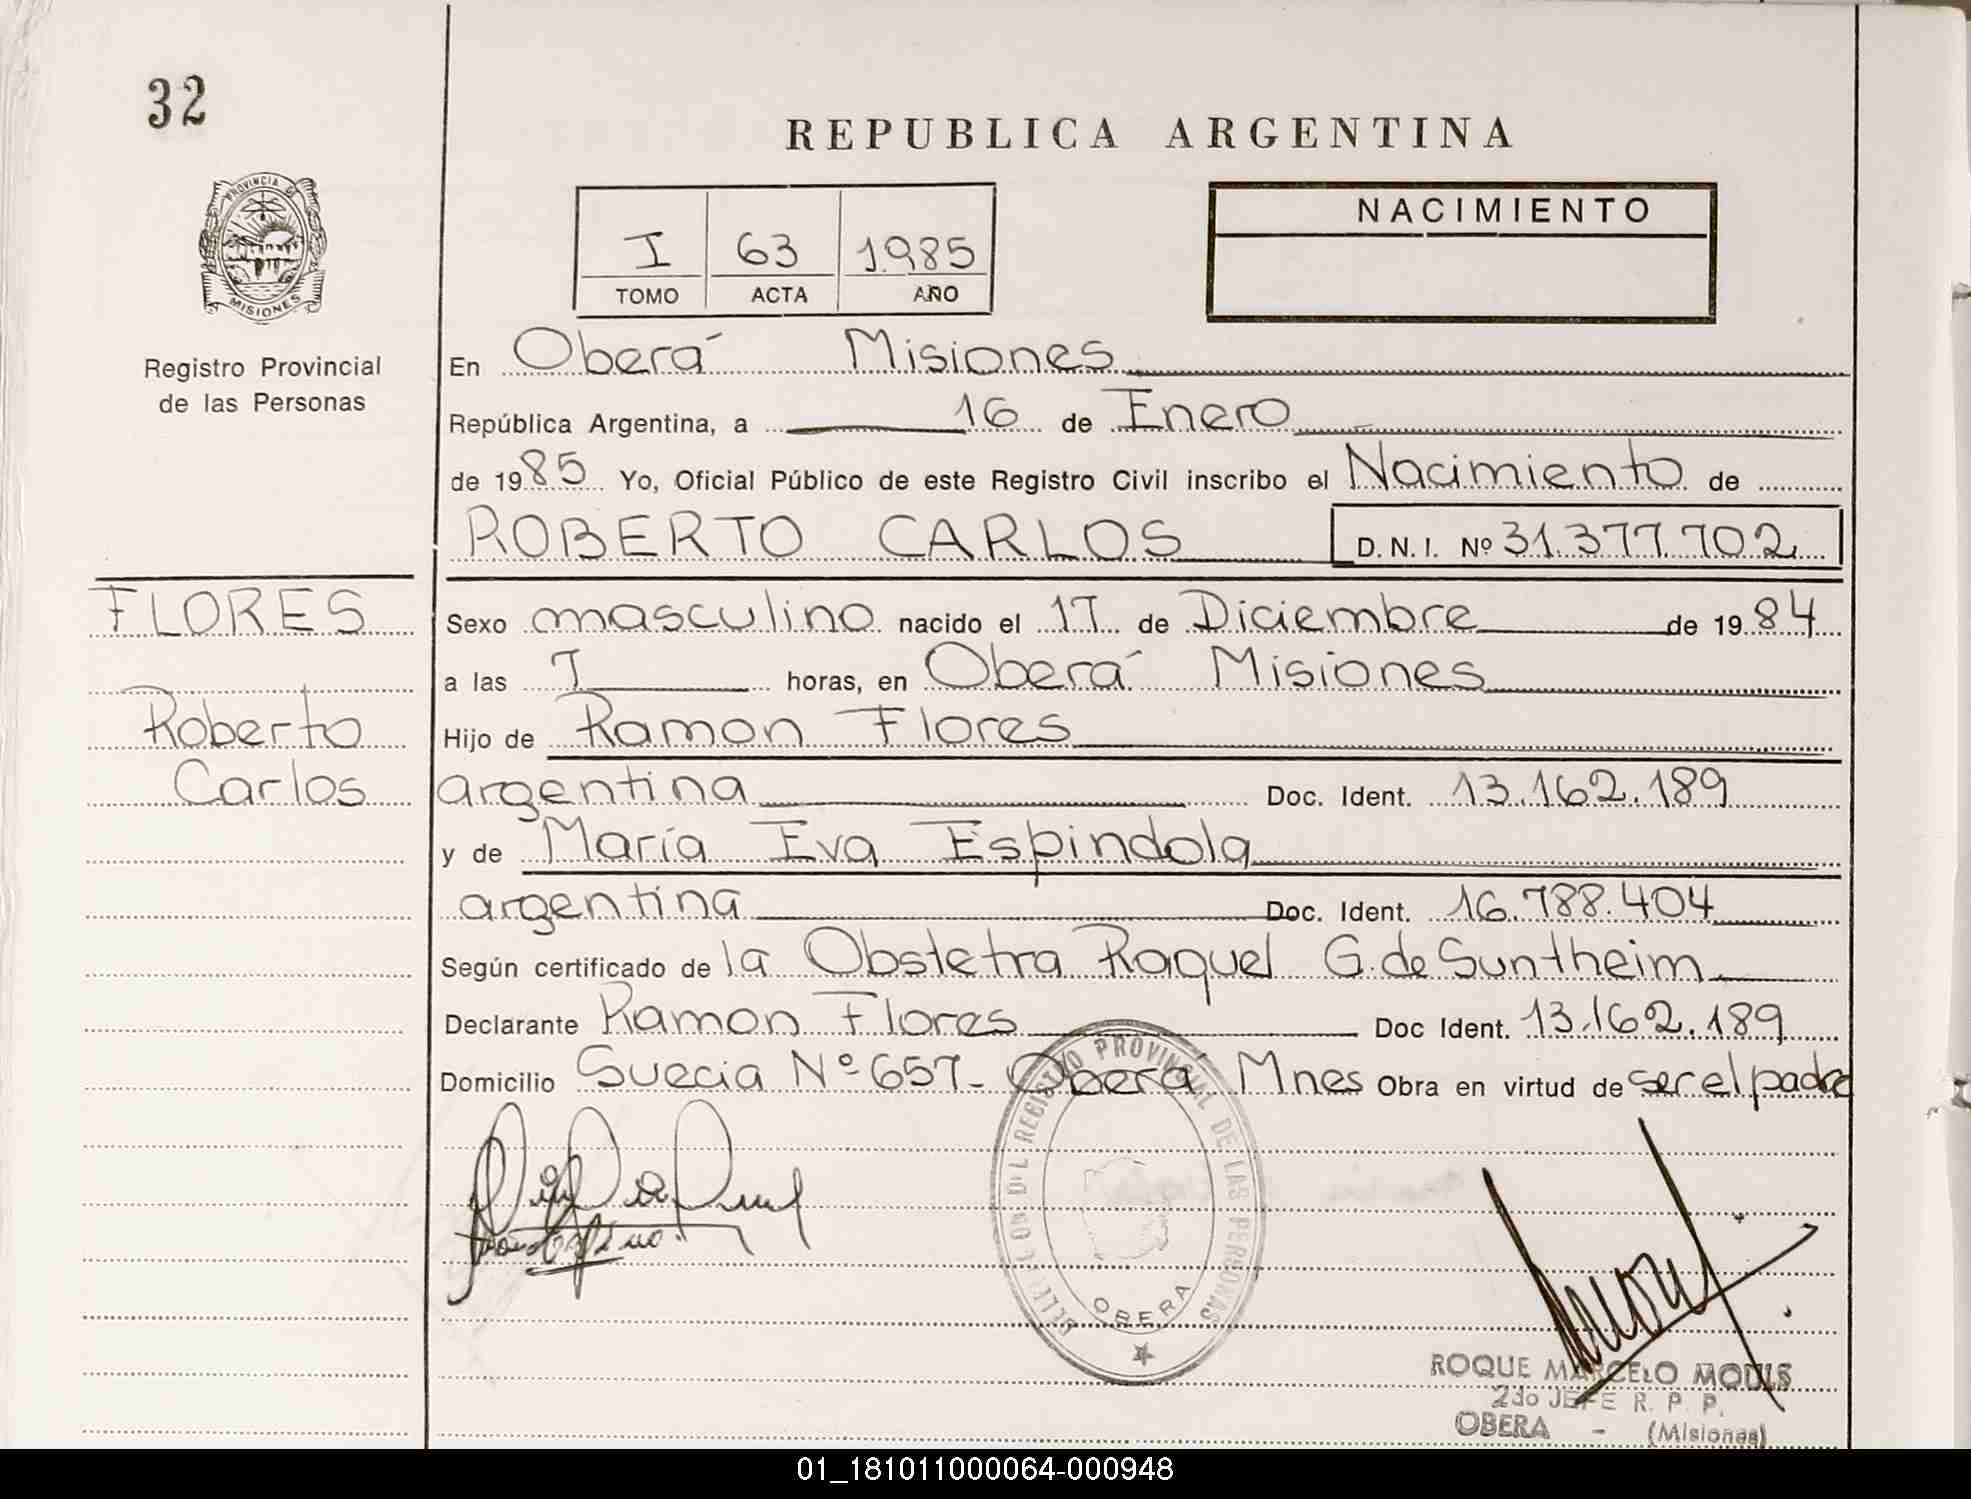 32
REPUBLICA ARGENTINA
PROVINCIA DE
MISIONES
I 63 1985
TOMO ACTA AÑO
NACIMIENTO
Registro Provincial
de las Personas
En Oberá Misiones
República Argentina, a 16 de Enero
de 1985 Yo, Oficial Público de este Registro Civil inscribo el Nacimiento de
ROBERTO CARLOS D.N.I. Nº 31.377.702
FLORES
Roberto
Carlos
Sexo masculino nacido el 17 de Diciembre de 1984
a las 7 horas, en Oberá Misiones
Hijo de Ramon Flores
argentina Doc. Ident. 13.162.189
y de María Eva Espindola
argentina Doc. Ident. 16.788.404
Según certificado de la Obstetra Raquel G. de Suntheim
Declarante Ramon Flores Doc Ident. 13.162.189
Domicilio Suecia Nº 657- Oberá Mnes Obra en virtud de ser el padre
REGISTRO PROVINCIAL DE LAS PERSONAS
OBERA
ROQUE MARCELO
2do JEFE R. P. P.
OBERA - (Misiones)
01_181011000064-000948